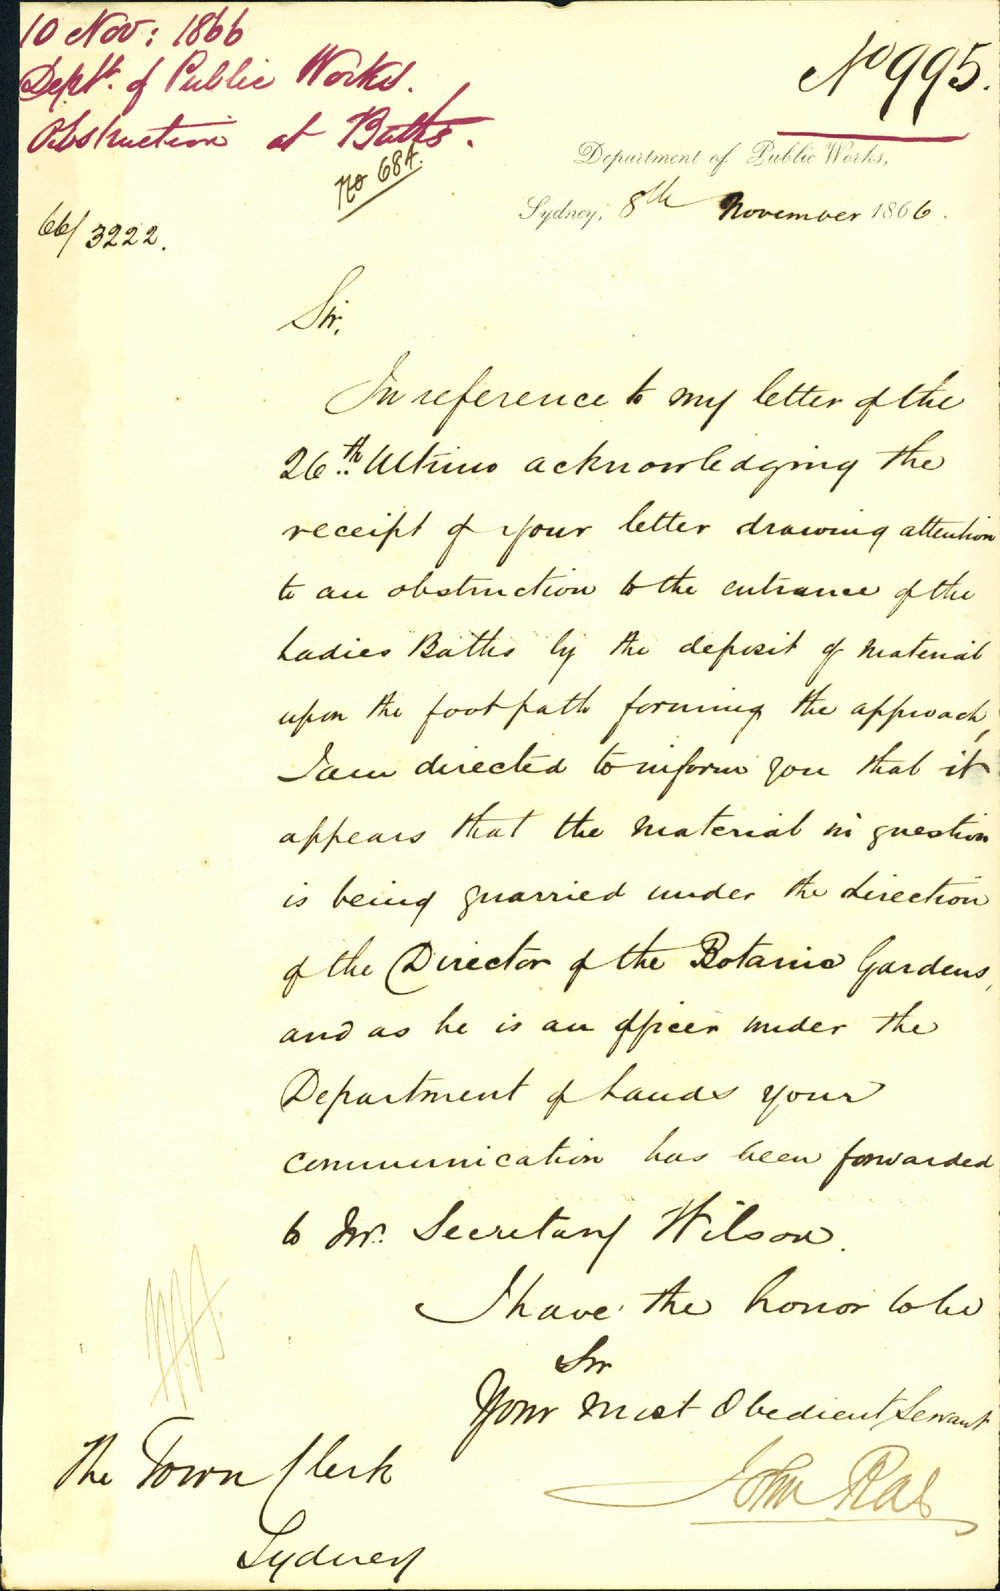 10 Nov: 1866
Deptt. of Public Works.
Obstruction at Baths.
No 684.
No 995.
Department of Public Works,
Sydney, 8th November 1866.
66/3222.
Sir,
In reference to my letter of the
26th Ultimo acknowledging the
receipt of your letter drawing attention
to an obstruction to the entrance of the
Ladies Baths by the deposit of material
upon the footpath forming the approach,
I am directed to inform you that it
appears that the material in question
is being quarried under the direction
of the Director of the Botanic Gardens,
and as he is an officer under the
Department of Lands your
communication has been forwarded
to Mr. Secretary Wilson.
I have the honor to be
Sir
Your Most Obedient Servant
John Rae
The Town Clerk
Sydney